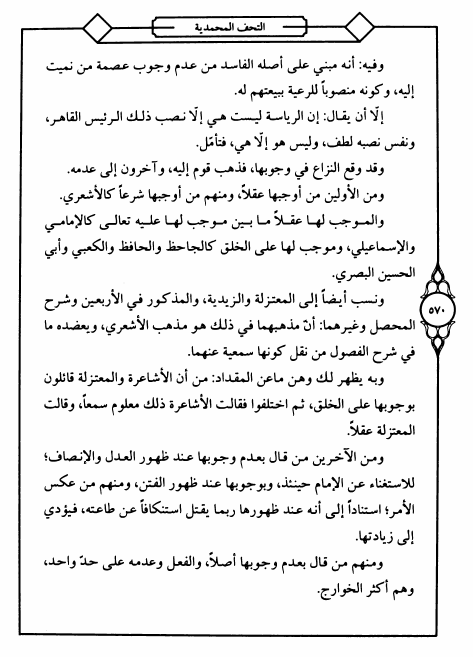 التحف المحمدية
وفيه: أنه مبني على أصله الفاسد من عدم وجوب عصمة من نميت
إليه، وكونه منصوباً للرعية ببيعتهم له.
إلّا أن يقال: إن الرياسة ليست هي إلّا نصب ذلك الرئيس القاهر،
ونفس نصبه لطف، وليس هو إلّا هي، فتأمّل.
وقد وقع النزاع في وجوبها، فذهب قوم إليه، وآخرون إلى عدمه.
ومن الأولين من أوجبها عقلاً، ومنهم من أوجبها شرعاً كالأشعري.
والموجب لها عقلاً ما بين موجب لها عليه تعالى كالإمامي
والإسماعيلي، وموجب لها على الخلق كالجاحظ والحافظ والكعبي وأبي
الحسين البصري.
ونسب أيضاً إلى المعتزلة والزيدية، والمذكور في الأربعين وشرح
المحصل وغيرهما: أنّ مذهبهما في ذلك هو مذهب الأشعري، ويعضده ما
في شرح الفصول من نقل كونها سمعية عنهما.
وبه يظهر لك وهن ماعن المقداد: من أن الأشاعرة والمعتزلة قائلون
بوجوبها على الخلق، ثم اختلفوا فقالت الأشاعرة ذلك معلوم سمعاً، وقالت
المعتزلة عقلاً.
ومن الآخرين من قال بعدم وجوبها عند ظهور العدل والإنصاف؛
للاستغناء عن الإمام حينئذ، وبوجوبها عند ظهور الفتن، ومنهم من عكس
الأمر؛ استناداً إلى أنه عند ظهورها ربما يقتل استنكافاً عن طاعته، فيؤدي
إلى زيادتها.
ومنهم من قال بعدم وجوبها أصلاً، والفعل وعدمه على حدّ واحد،
وهم أكثر الخوارج.
٥٧٠